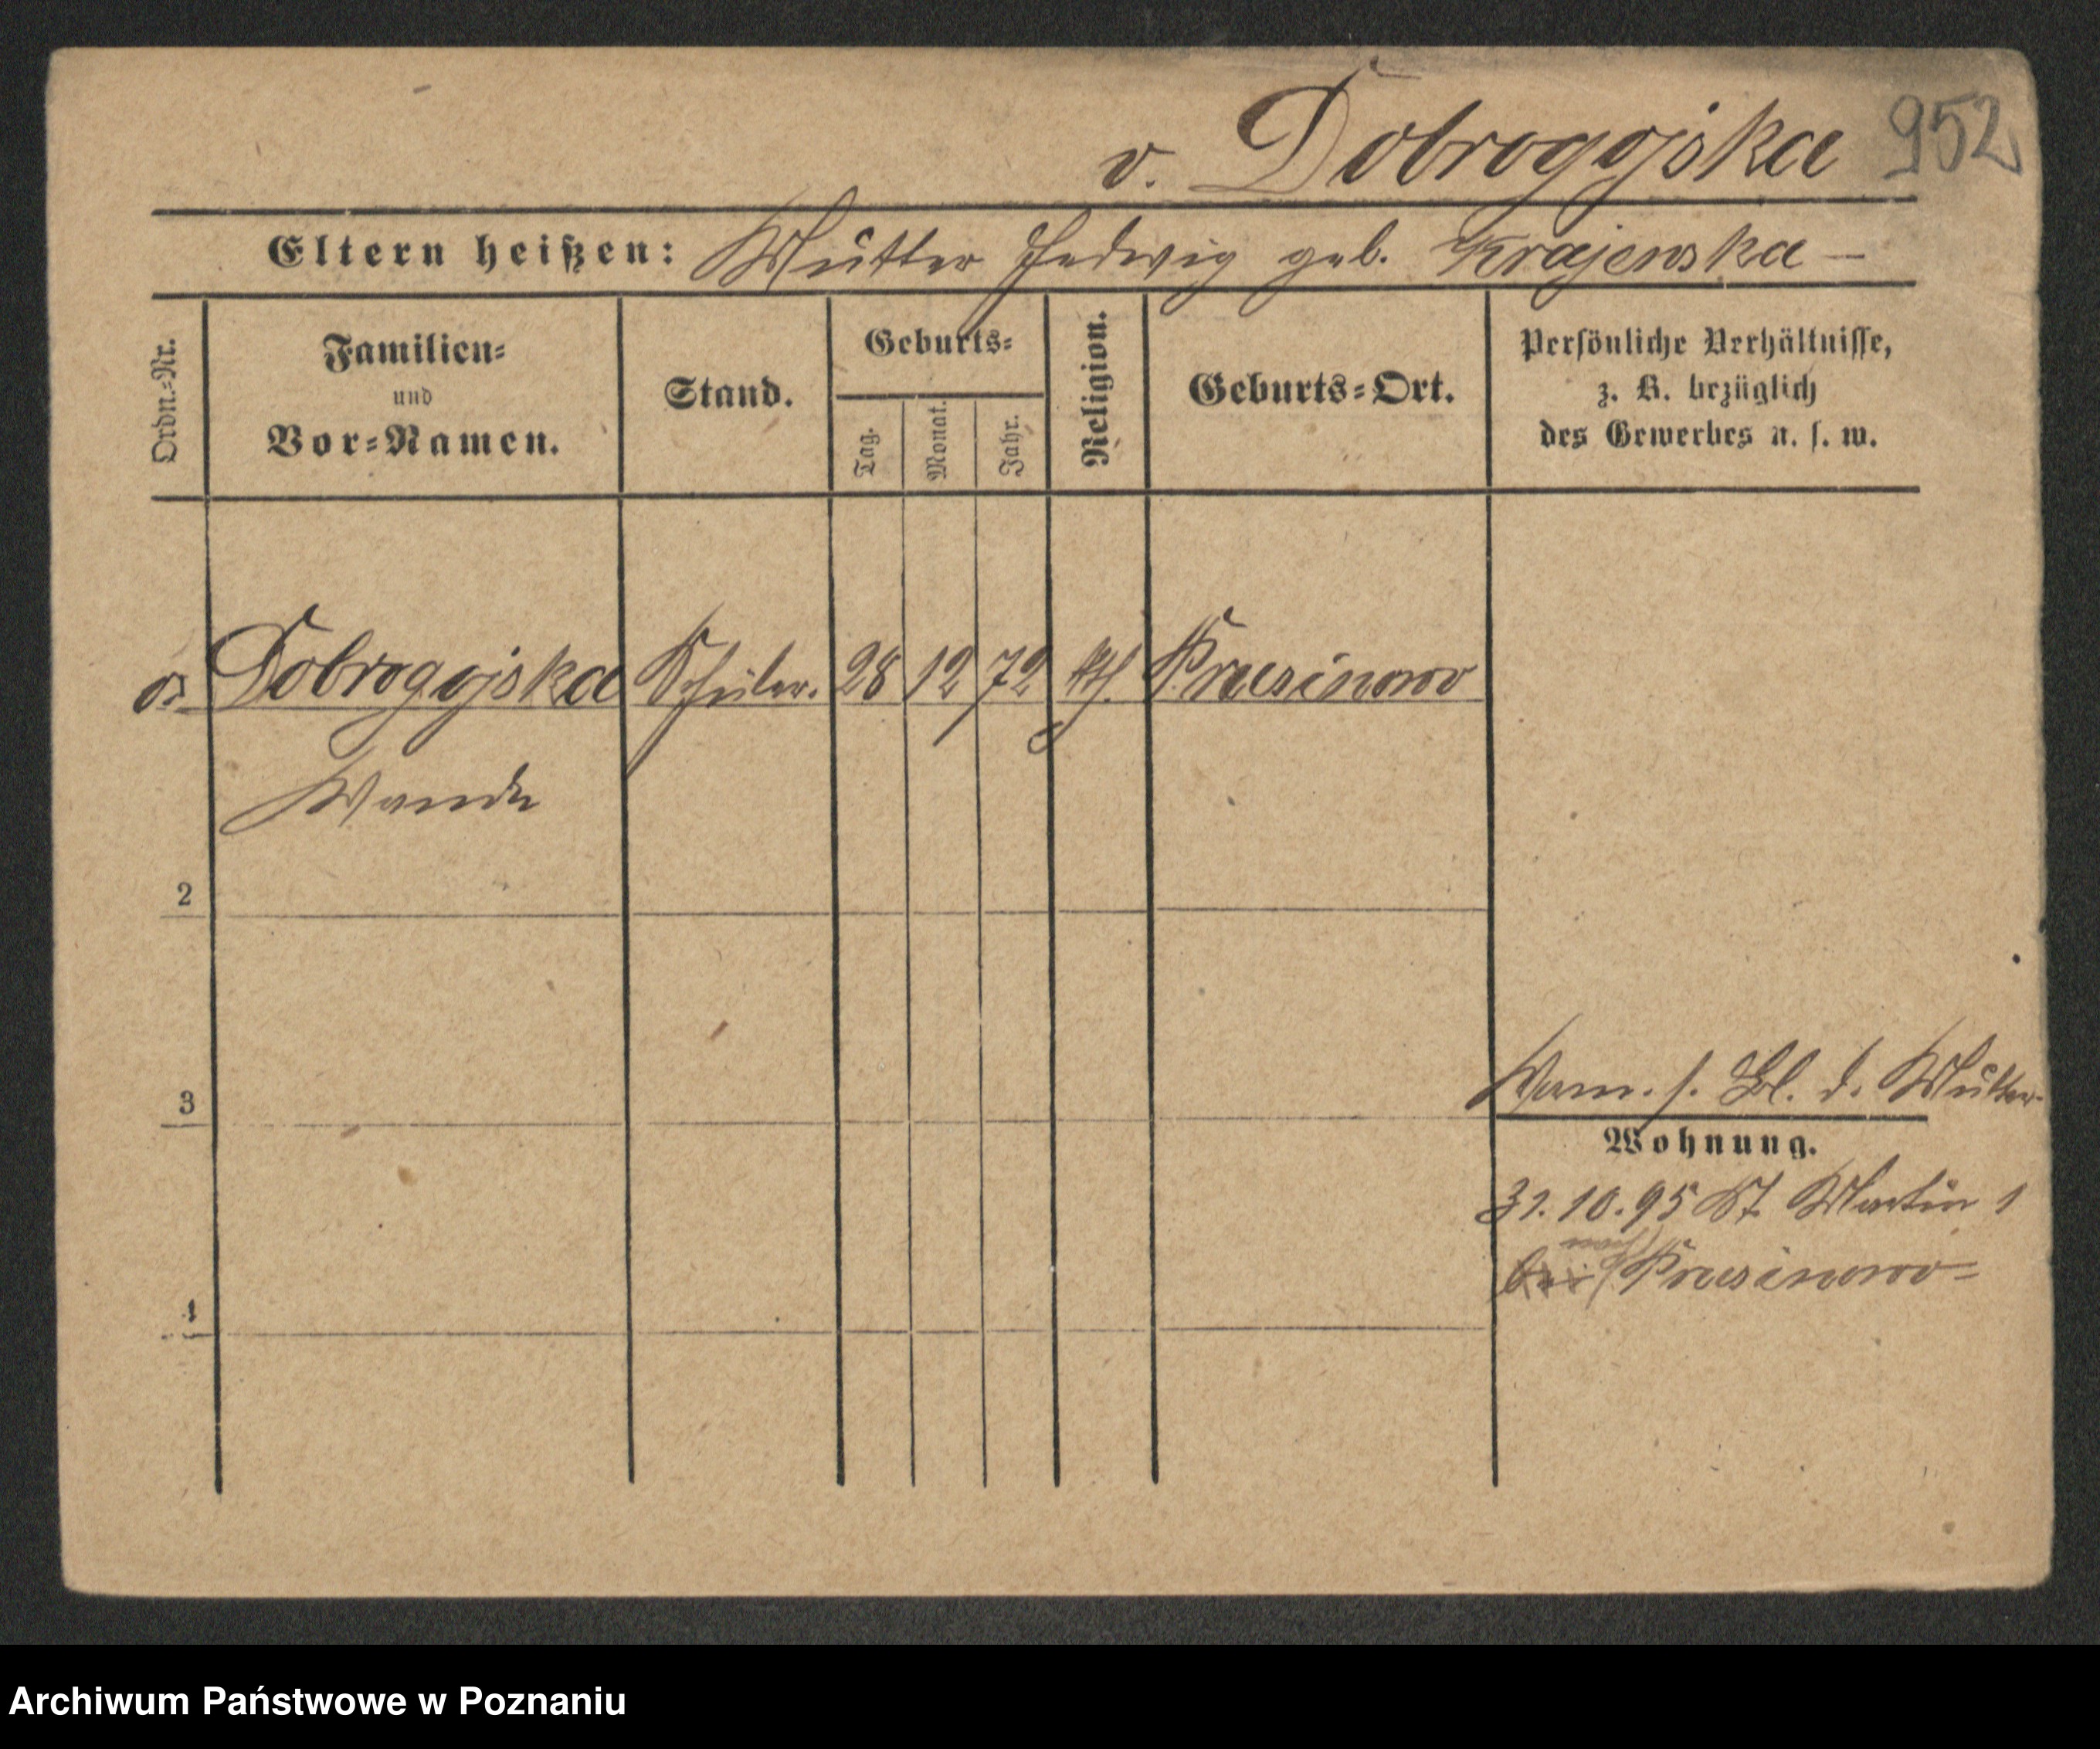 v. Dobrogojska 952
Eltern heißen: Mutter Hedwig geb. Krajewska –
Ordn.=Nr.
Familien=
und
Vor=Namen.
Stand.
Geburts=
Tag.
Monat.
Jahr.
Religion.
Geburts=Ort.
Persönliche Verhältnisse,
z. B. bezüglich
des Gewerbes u. s. w.
v. Dobrogojska Schüler. 28 12 72 kth. Prusinowo
Wanda
2
3
Verm. s. Bl. d. Mutter.
Wohnung.
31.10.95 St. Martin 1
Prusinowo
4
Archiwum Państwowe w Poznaniu